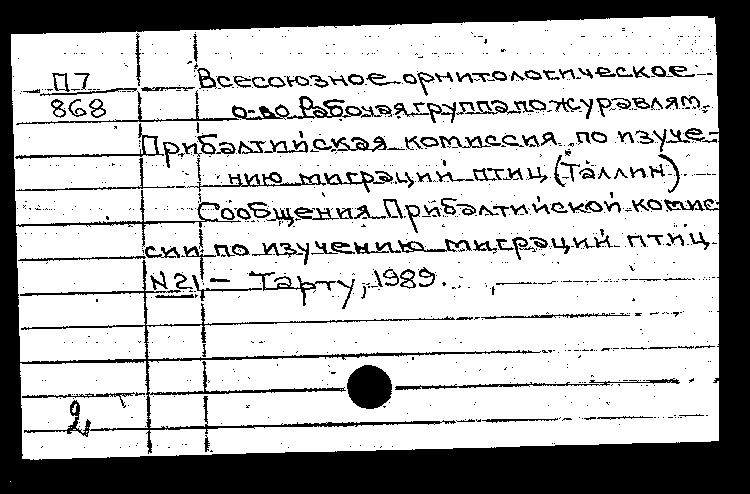 П7 Всесоюзное орнитологическое
868 о-во Рабочая группа по журавлям.
Прибалтийская комиссия по изуче-
нию миграций птиц (Таллин)
Сообщения Прибалтийской комис-
сии по изучению миграций птиц
N21 – Тарту, 1989.
2,